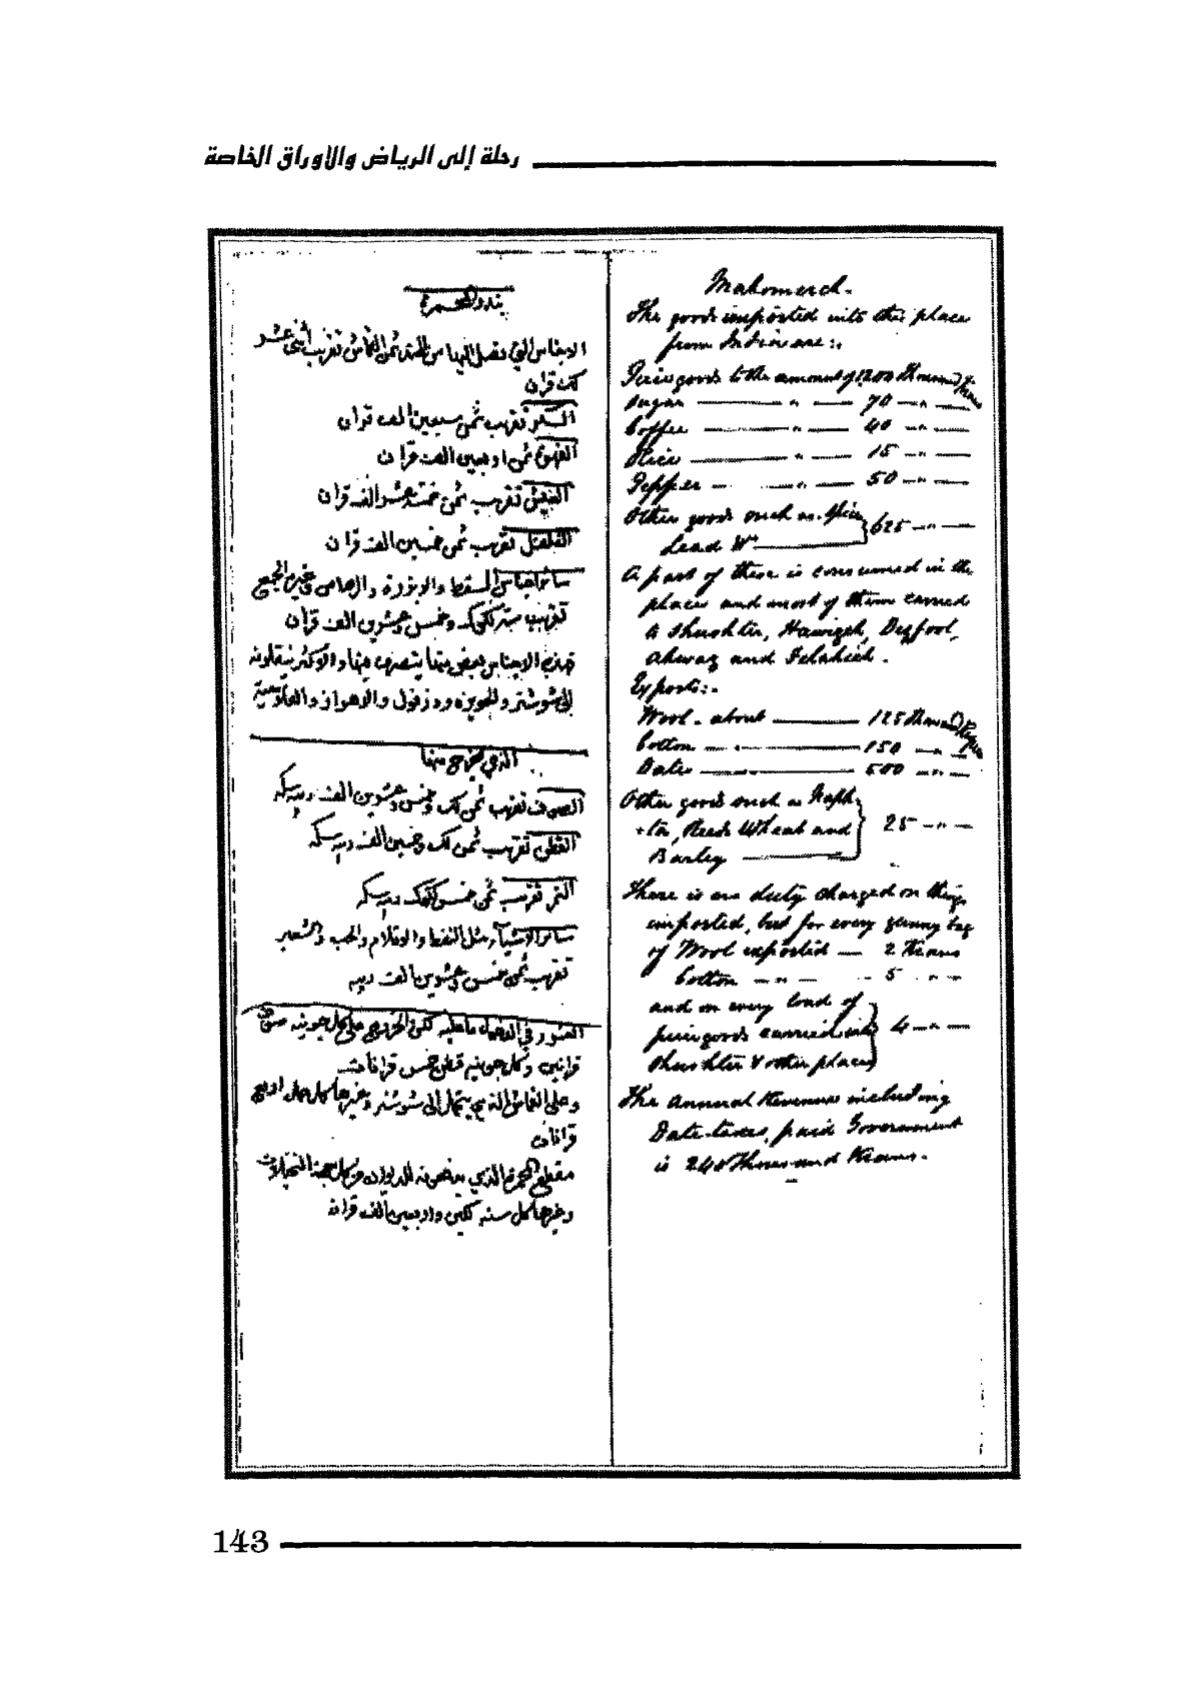 رحلة إلى الرياض والأوراق الخاصة
بندر المحمرة
الاجناس التي تصل اليها من الهند ثمن القماش تقريب اثنى عشر
لك قران
السكر تقريب ثمن سبعين الف قران
القهوة ثمن اربعين الف قران
تقريب ثمن خمسة عشر الف قران
الفلفل تقريب ثمن خمسين الف قران
سائر اجناس السقط والابزرة والرصاص
تقريب ستة لكوك وخمس وعشرين الف قران
فهذه الاجناس بعض منها يتصرف فيها والاكثر ينقلونه
الى شوشتر والحويزه ودزفول والاهواز والفلاحية
الذي يخرج منها
الصوف تقريب ثمن لك وخمس وعشرين الف ربيه سكه
القطن تقريب ثمن لك وخمسين الف ربيه سكه
التمر تقريب ثمن خمس لكوك ربيه سكه
سائر الاشيآء مثل النفط والاقلام والحب والشعير
تقريب ثمن خمس وعشرين الف ربيه
العشور في ما عليه لكن الخروج على كل جونيه صوف
قرانين وكل جونيه قطن خمس قرانات
وعلى القماش الذي يتحمل الى شوشتر وغيرها كل حمل اربع
قرانات
الذي للديوان من كل جهة
وغيرها كل سنه لكين واربعين الف قران
Mahomerah.
The goods imported into this place
from India are:
Piecegoods to the amount of 1200 Thousand Krans
Sugar — " — 70 — " —
Coffee — " — 40 — " —
Rice — " — 15 — " —
Pepper — " — 50 — " —
Other goods such as Spices
Lead &c — 625 — " —
A part of these is consumed in the
place and most of them carried
to Shushter, Hawizeh, Dezfool,
Ahwaz and Felahieh.
Exports:-
Wool - about — 125 thousand Rupees
Cotton — " — 150 — " —
Dates — 500 — " —
Other goods such as Naph-
-ta, Reeds Wheat and
Barley — 25 — " —
There is no duty charged on things
imported, but for every gunny bag
of Wool exported — 2 Krans
Cotton — " — 5 " "
and on every load of
piecegoods carried into
Shushter & other places 4 — " —
The annual Revenue including
Date-taxes, paid Government
is 240 Thousand Krans.
143